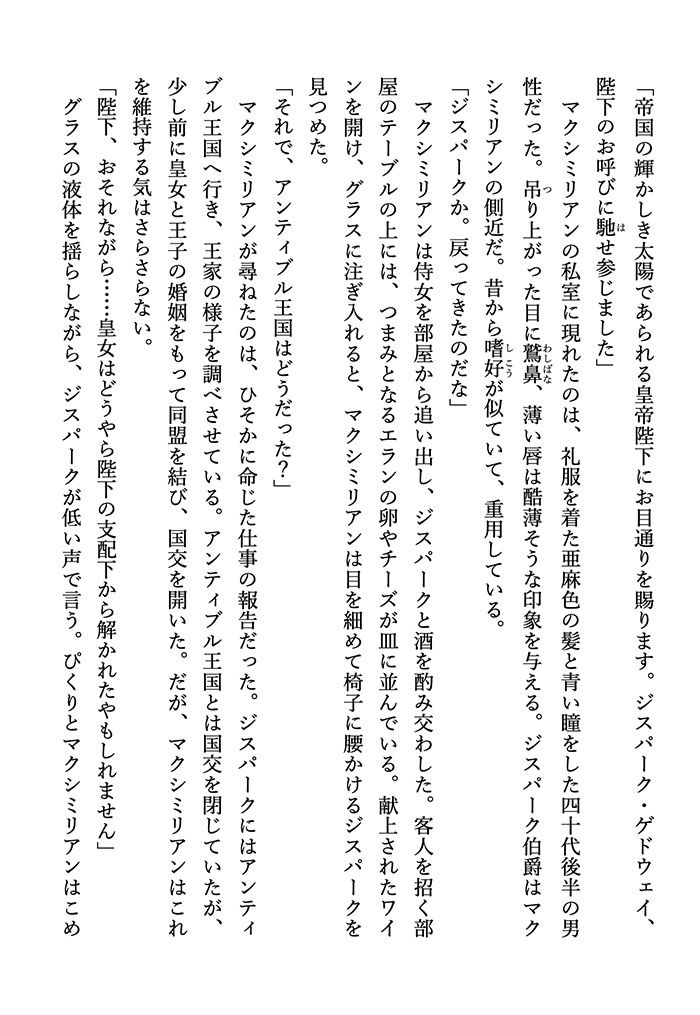 「帝国の輝かしき太陽であられる皇帝陛下にお目通りを賜ります。ジスパーク・ゲドウェイ、
陛下のお呼びに馳せ参じました」
　マクシミリアンの私室に現れたのは、礼服を着た亜麻色の髪と青い瞳をした四十代後半の男
性だった。吊り上がった目に鷲鼻、薄い唇は酷薄そうな印象を与える。ジスパーク伯爵はマク
シミリアンの側近だ。昔から嗜好が似ていて、重用している。
「ジスパークか。戻ってきたのだな」
　マクシミリアンは侍女を部屋から追い出し、ジスパークと酒を酌み交わした。客人を招く部
屋のテーブルの上には、つまみとなるエランの卵やチーズが皿に並んでいる。献上されたワイ
ンを開け、グラスに注ぎ入れると、マクシミリアンは目を細めて椅子に腰かけるジスパークを
見つめた。
「それで、アンティブル王国はどうだった？」
　マクシミリアンが尋ねたのは、ひそかに命じた仕事の報告だった。ジスパークにはアンティ
ブル王国へ行き、王家の様子を調べさせている。アンティブル王国とは国交を閉じていたが、
少し前に皇女と王子の婚姻をもって同盟を結び、国交を開いた。だが、マクシミリアンはこれ
を維持する気はさらさらない。
「陛下、おそれながら……皇女はどうやら陛下の支配下から解かれたやもしれません」
　グラスの液体を揺らしながら、ジスパークが低い声で言う。ぴくりとマクシミリアンはこめ